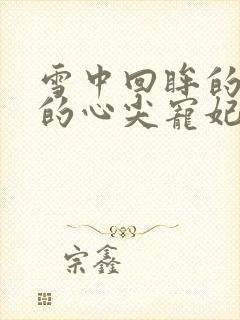 雪中回眸的
的心尖宠妃
宗鑫